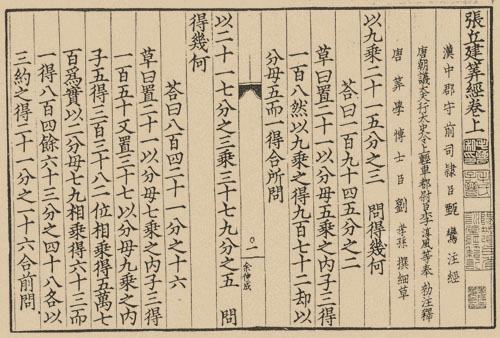 張丘建筭經卷上
漢中郡守前司隸臣甄鸞注經
唐朝議大夫行太史令上輕車都尉臣李淳風等奉 勑注釋
唐筭學博士臣劉孝孫撰細草
以九乗二十一五分之三 問得幾何
荅曰一百九十四五分之二
草曰置二十一以分母五乗之内子三得
一百八然以九乗之得九百七十二却以
分母五而一得合所問
余仲成
以二十一七分之三乗三十七九分之五 問
得幾何
荅曰八百四二十一分之十六
草曰置二十一以分母七乗之内子三得
一百五十又置三十七以分母九乗之内
子五得三百三十八二位相乗得五萬七
百爲實以二分母七九相乗得六十三而
一得八百四餘六十三分之四十八各以
三約之得二十一分之一十六合前問